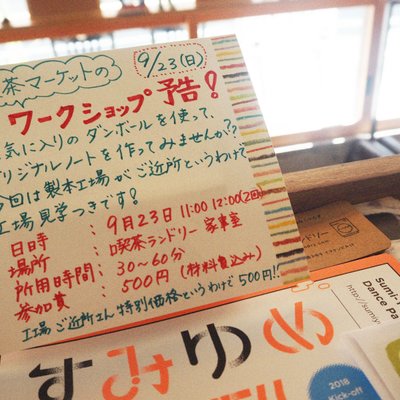 茶マーケットの
9/23(日)
ワークショップ 予告!
気に入りのダンボールを使って、
リジナルノートを作ってみませんか??
今回は製本工場がご近所というわけで
工場見学つきです!
日時 : 9月23日 11:00 12:00(2回)
場所 : 喫茶ランドリー 家事室
所用時間 : 30〜60分
参加費 : 500円 (材料費込み)
工場ご近所さん特別価格というわけで500円!!
すみゆめ
Sumi-Y
Dance Pa
http://sumiy
2018
Kick-off